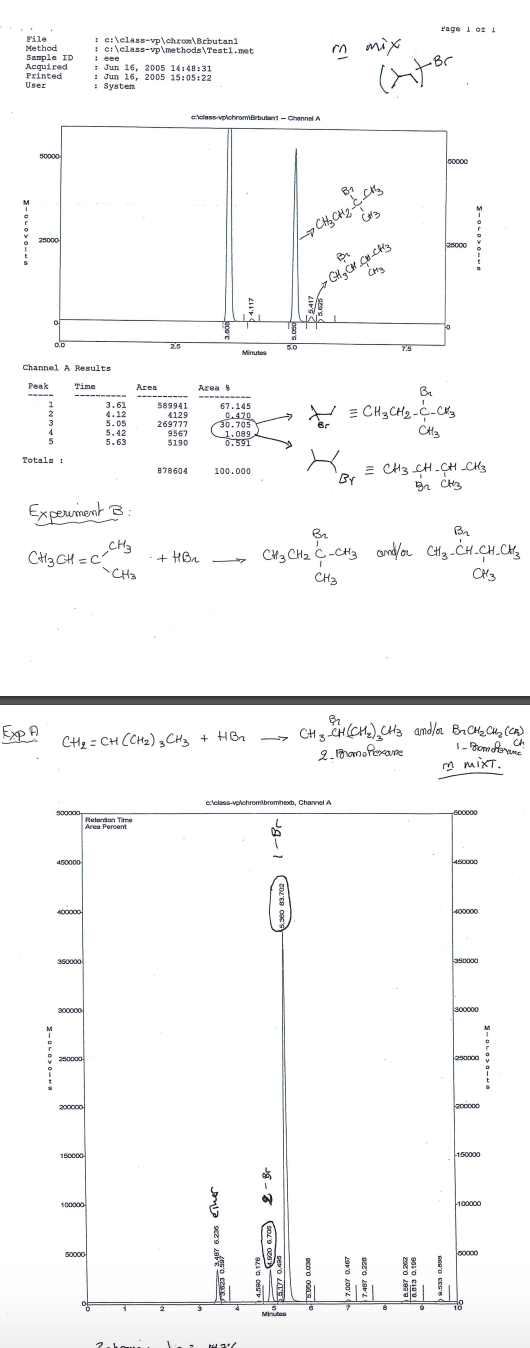 Page 1 of 1
File : c:\class-vp\chrom\Brbutan1
Method : c:\class-vp\methods\Test1.met
Sample ID : eee
Acquired : Jun 16, 2005 14:48:31
Printed : Jun 16, 2005 15:05:22
User : System
m mix
Br
c:\class-vp\chrom\Brbutan1 -- Channel A
50000
50000
25000
25000
0
0
Microvolts
Microvolts
Br CH3
CH3CH2 C
CH3
Br
CH3CH-CH-CH3
CH3
3.608
4.117
5.050
5.417
5.625
0.0 2.5 5.0 7.5
Minutes
Channel A Results
Peak Time Area Area %
1 3.61 589941 67.145
2 4.12 4129 0.470
3 5.05 269777 30.705
4 5.42 9567 1.089
5 5.63 5190 0.591
Totals :
878604 100.000
Br
Br ≡ CH3CH2-C-CH3
CH3
Br ≡ CH3 -CH-CH-CH3
Br CH3
Experiment B:
CH3CH=C CH3 CH3 + HBr → CH3CH2 C-CH3 and/or CH3-CH-CH-CH3
Br Br
CH3 CH3
Exp A
CH2=CH(CH2)3CH3 + HBr → CH3-CH(CH2)3CH3 and/or BrCH2CH2
Br
2-Bromohexane
m mixT.
c:\class-vp\chrom\bromhexb, Channel A
Retention Time
Area Percent
500000
450000
400000
350000
300000
250000
200000
150000
100000
50000
0
500000
450000
400000
350000
300000
250000
200000
150000
100000
50000
0
Microvolts
Microvolts
ether
2-Br
1-Br
3.487 6.236
4.590 0.176
4.920 6.706
5.177 0.496
5.360 83.702
5.950 0.038
7.007 0.467
7.467 0.228
8.587 0.262
8.813 0.198
9.533 0.896
0 1 2 3 4 5 6 7 8 9 10
Minutes